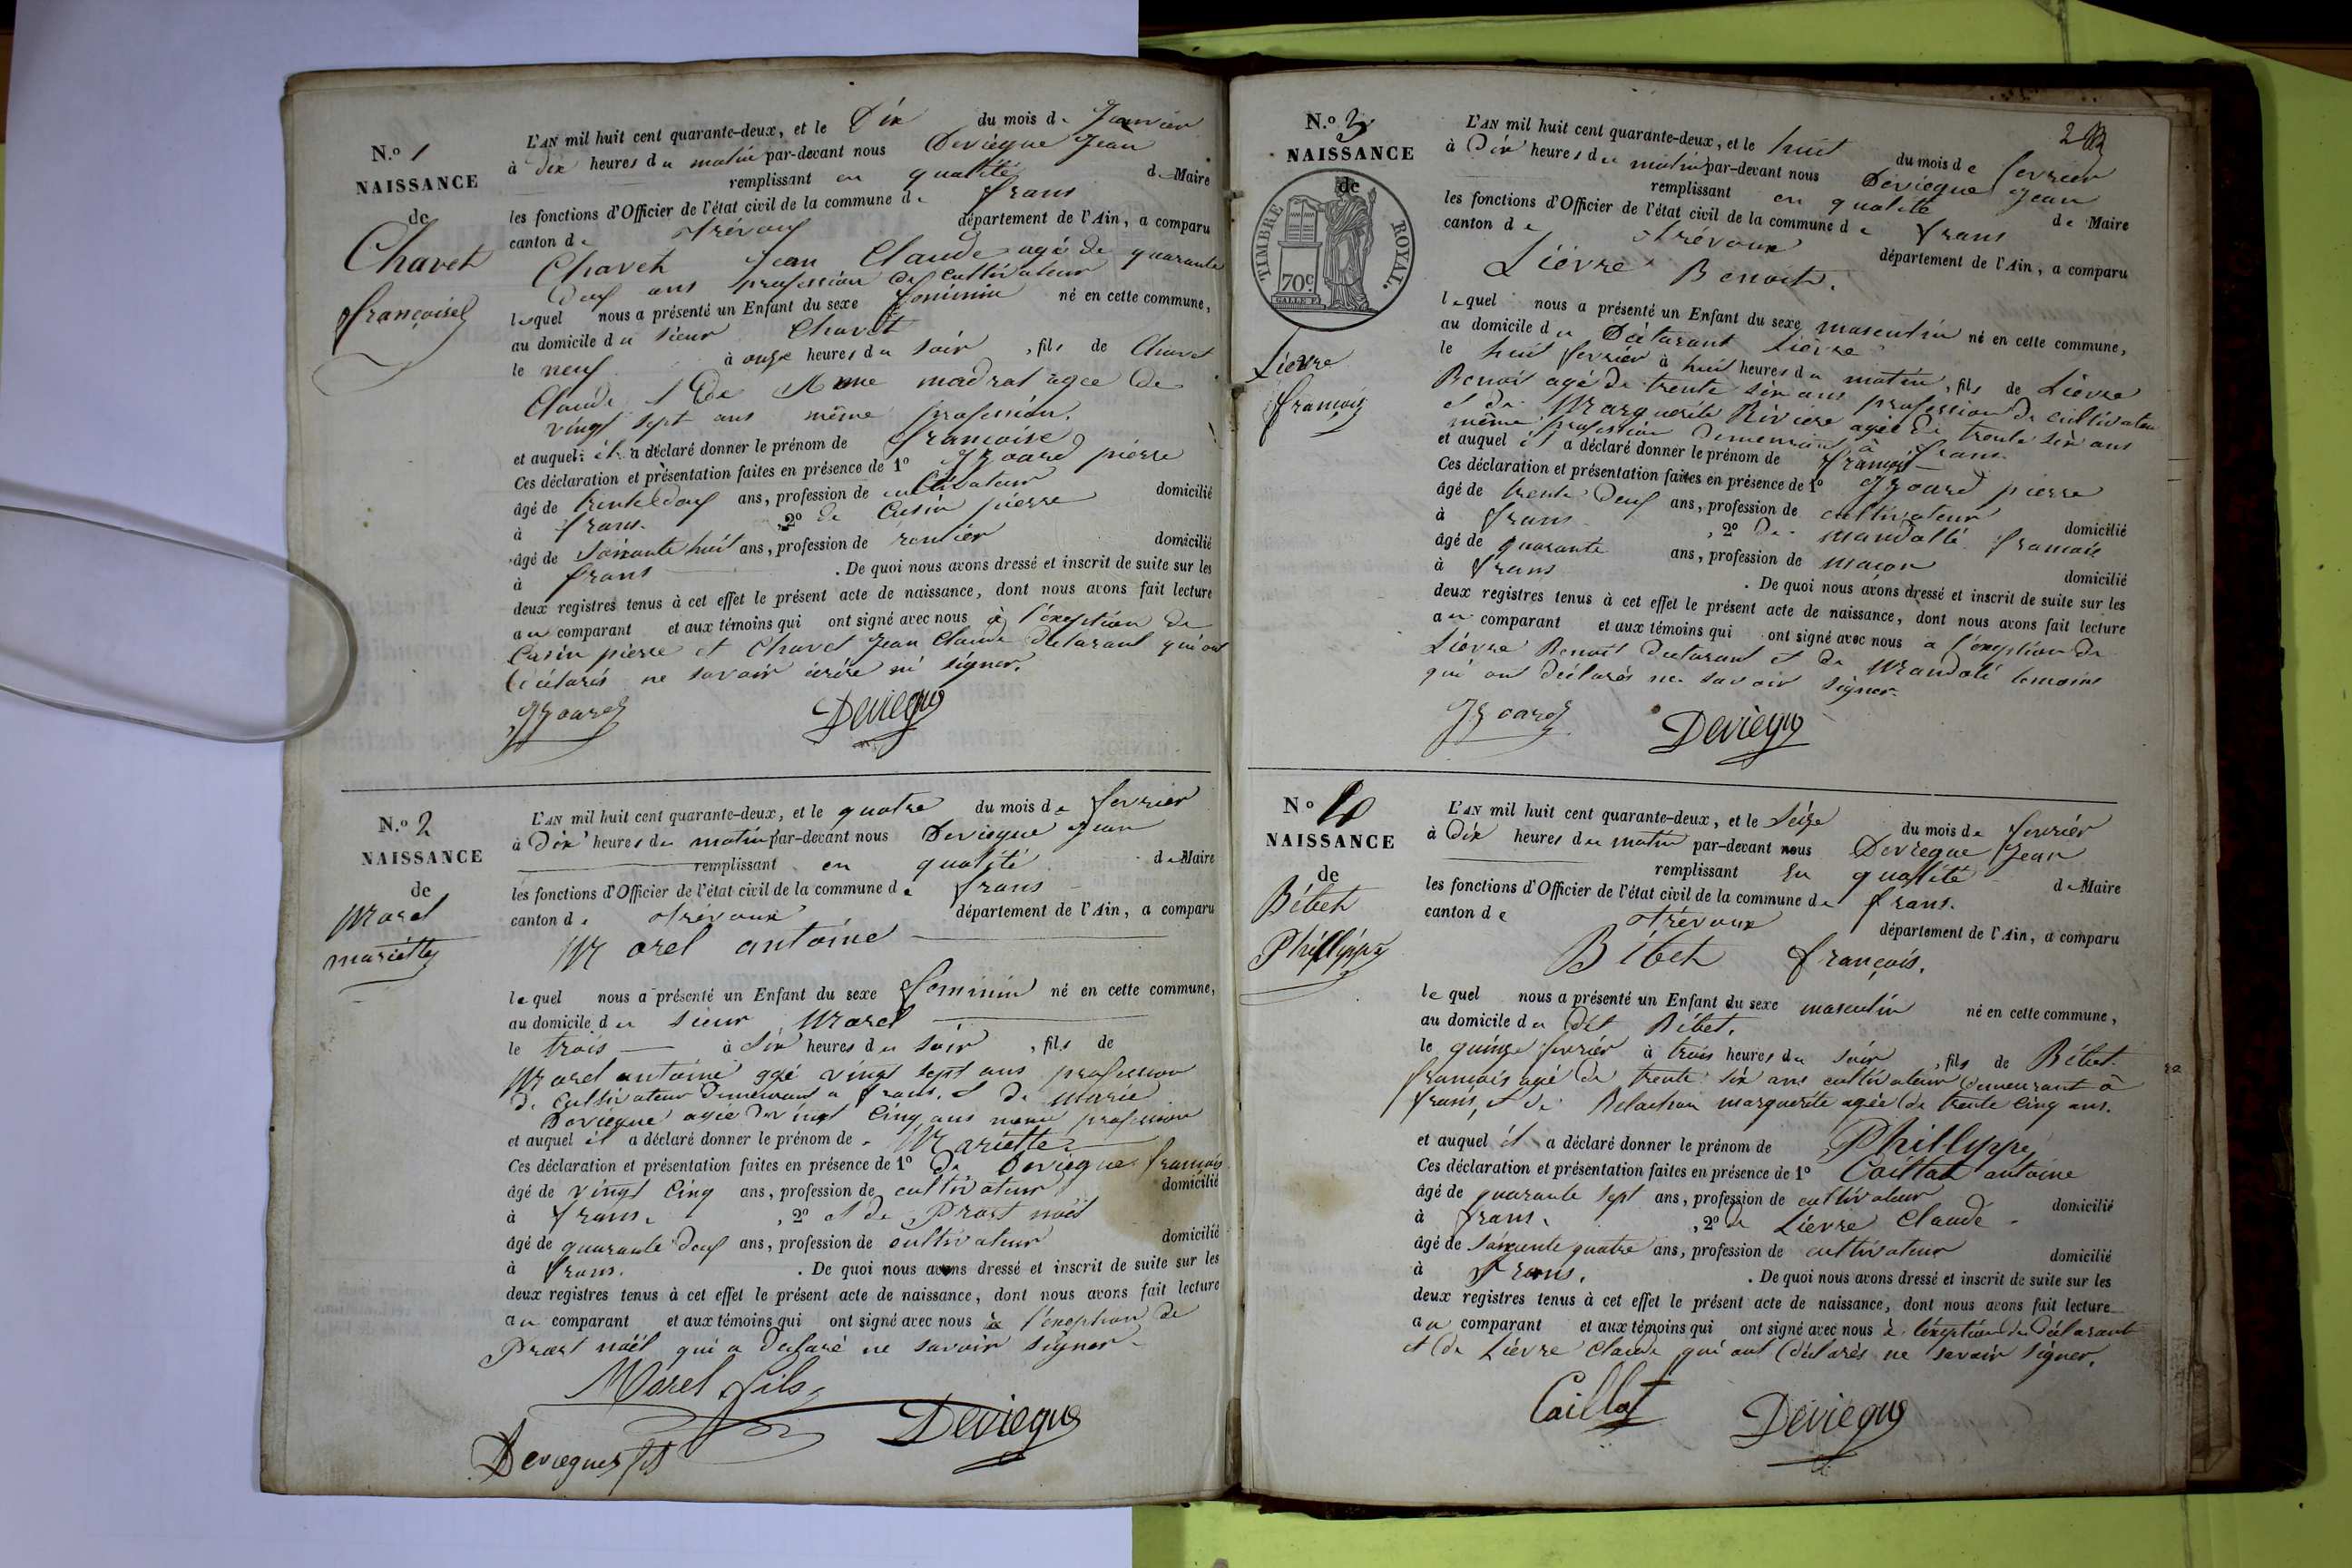 N.o 1
NAISSANCE
de
Chavet
françoise
L'AN mil huit cent quarante-deux, et le Dix du mois de Janvier
à dix heures du matin par-devant nous Deviegue Jean
remplissant en qualité de Maire
les fonctions d'Officier de l'état civil de la commune de frans
canton de trévoux département de l'Ain, a comparu
Chavet Jean Claude agé de quarante
deux ans profession de cultivateur
lequel nous a présenté un Enfant du sexe féminin né en cette commune,
au domicile du sieur Chavet
le neuf à onze heures du soir, fils de Chavet
Claude et De madrat agée de
vingt sept ans même profession.
et auquel il a déclaré donner le prénom de françoise
Ces déclaration et présentation faites en présence de 1º Izoard pierre
âgé de trente deux ans, profession de cultivateur domicilié
à frans. 2º de Cusin pierre
âgé de soixante huit ans, profession de rentier domicilié
à frans . De quoi nous avons dressé et inscrit de suite sur les
deux registres tenus à cet effet le présent acte de naissance, dont nous avons fait lecture
au comparant et aux témoins qui ont signé avec nous à l'éxeption de
Cusin pierre et Chavet Jean Claude declarant qui ont
déclarés ne savoir écrire ni signer.
Izoard Deviegue
N.o 2
NAISSANCE
de
Morel
mariette
L'AN mil huit cent quarante-deux, et le quatre du mois de fevrier
à Dix heures du matin par-devant nous Deviegue Jean
remplissant en qualité de Maire
les fonctions d'Officier de l'état civil de la commune de frans
canton de trévoux département de l'Ain, a comparu
Morel antoine
lequel nous a présenté un Enfant du sexe feminin né en cette commune,
au domicile du sieur Morel
le trois à six heures du soir, fils de
Morel antoine agé vingt sept ans profession
de cultivateur demeurant a frans. et de marie
Deviegue agée de vingt cinq ans meme profession
et auquel il a déclaré donner le prénom de Mariette
Ces déclaration et présentation faites en présence de 1º de Deviegue francois
âgé de vingt cinq ans, profession de cultivateur domicilié
à frans. , 2º et de Prost noël
âgé de quarante deux ans, profession de cultivateur domicilié
à frans. . De quoi nous avons dressé et inscrit de suite sur les
deux registres tenus à cet effet le présent acte de naissance, dont nous avons fait lecture
au comparant et aux témoins qui ont signé avec nous à l'éxeption de
Prost noël qui a declaré ne savoir signer
Morel fils
Deviegues fils Deviegue
2
N.o 3
NAISSANCE
de
TIMBRE ROYAL.
70c
Lievre
francois
L'AN mil huit cent quarante-deux, et le huit du mois de fevrier
à Dix heures du matin par-devant nous Deviegue Jean
remplissant en qualité de Maire
les fonctions d'Officier de l'état civil de la commune de frans
canton de trévoux département de l'Ain, a comparu
Lièvre Benoit.
lequel nous a présenté un Enfant du sexe masculin né en cette commune,
au domicile du Déclarant Lièvre
le huit fevrier à huit heures du matin, fils de Lièvre
Benoit agé de trente six ans profession de cultivateur
et de Marguerite Riviere agée de trente six ans
même profession demeurant à frans.
et auquel il a déclaré donner le prénom de francois
Ces déclaration et présentation faites en présence de 1º Izoard pierre
âgé de trente deux ans, profession de cultivateur domicilié
à frans , 2º De mandolié francois
âgé de quarante ans, profession de macon domicilié
à frans . De quoi nous avons dressé et inscrit de suite sur les
deux registres tenus à cet effet le présent acte de naissance, dont nous avons fait lecture
au comparant et aux témoins qui ont signé avec nous a l'éxeption de
Lièvre Benoit declarant et de Mandolié temoins
qui ont déclarés ne savoir signer.
Izoard Deviegue
No 4
NAISSANCE
de
Bébet
Phillyppe
L'AN mil huit cent quarante-deux, et le Seize du mois de fevrier
à Dix heures du matin par-devant nous Deviegue Jean
remplissant En qualité de Maire
les fonctions d'Officier de l'état civil de la commune de frans.
canton de trévoux département de l'Ain, a comparu
Bébet françois.
lequel nous a présenté un Enfant du sexe masculin né en cette commune,
au domicile du dit Bébet.
le quinze fevrier à trois heures du soir, fils de Bébet
francois agé de trente six ans cultivateur demeurant à
frans, et de marguerite agée de trente cinq ans.
et auquel il a déclaré donner le prénom de Phillyppe
Ces déclaration et présentation faites en présence de 1º Caillat antoine
âgé de quarante sept ans, profession de cultivateur domicilié
à frans. , 2º de Lièvre Claude
âgé de soixante quatre ans, profession de cultivateur domicilié
à frans. . De quoi nous avons dressé et inscrit de suite sur les
deux registres tenus à cet effet le présent acte de naissance, dont nous avons fait lecture
au comparant et aux témoins qui ont signé avec nous à l'éxeption du déclarant
et de Lièvre Claude qui ont déclarés ne savoir signer.
Caillat Deviegue